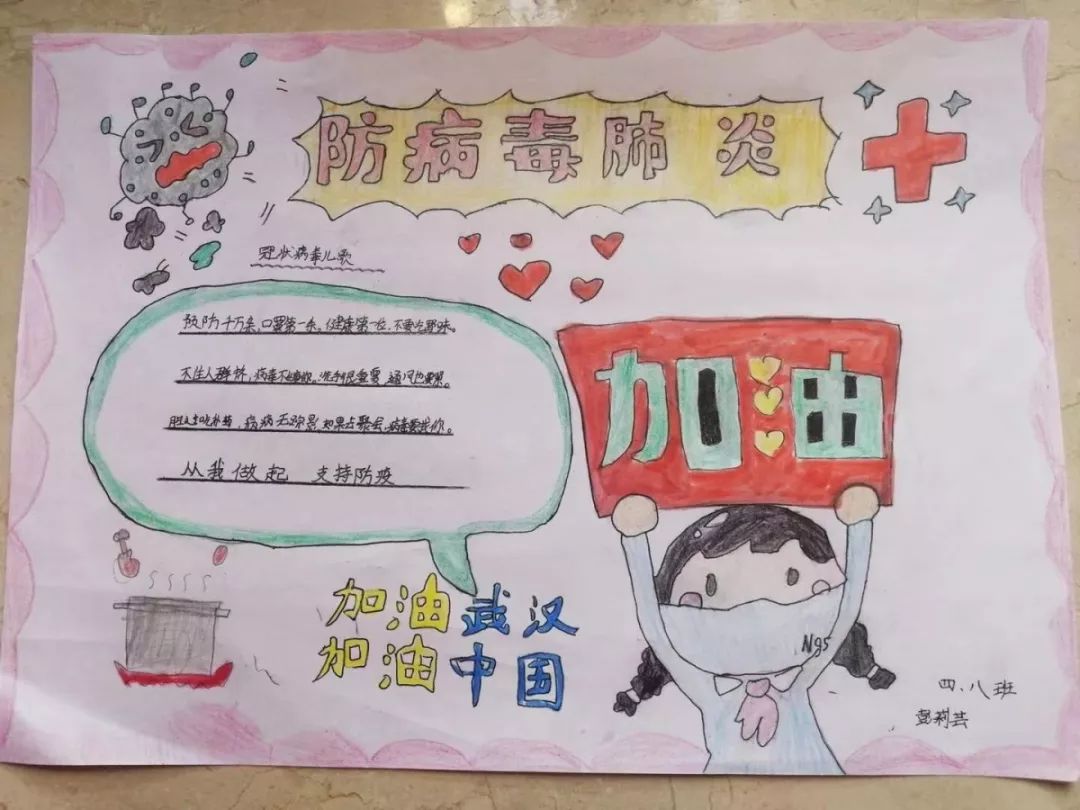 防病毒肺炎
冠状病毒儿歌
预防千万条,口罩第一条。健康第一位,不要吃野味。
不往人群挤,病毒不 洗手很重要,通风也要
吃补药,疫病无 如果去聚会,病毒要找你。
从我做起 支持防疫
加油
加油武汉
加油中国
N95
四、八班